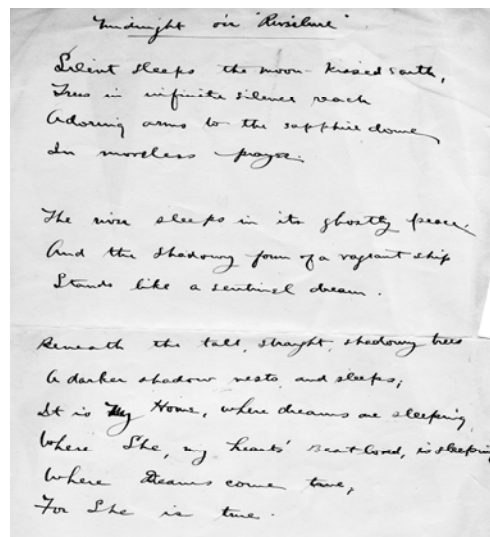 Midnight on "Riverline"
Silent sleeps the moon-kissed earth,
Trees in infinite silence reach
Adoring arms to the sapphire dome,
In wordless prayer.
The river sleeps in its ghostly peace.
And the shadowy form of a vagrant ship
Stands like a sentinel dream.
Beneath the tall, straight, shadowy trees
A darker shadow rests, and sleeps;
It is My Home, where dreams are sleeping,
Where She, my hearts' Best loved, is sleeping
Where Dreams come true,
For She is true.